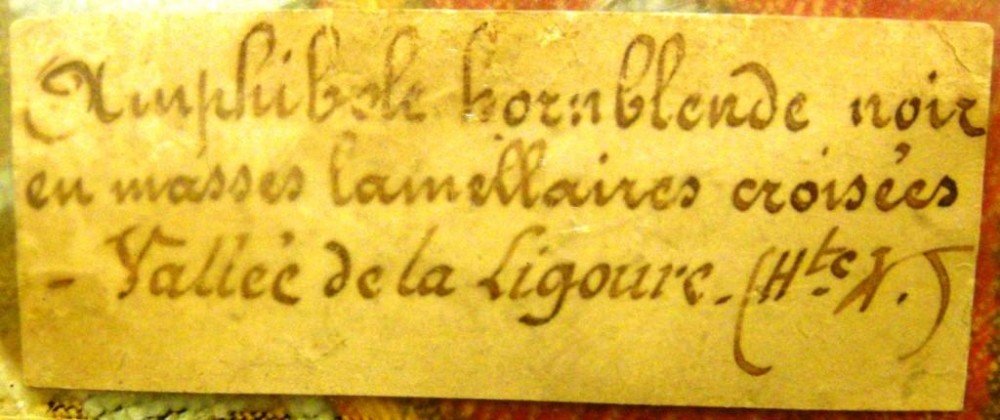 Amphibole hornblende noir
en masses lamellaires croisées
- Vallée de la Ligoure. (Hte V.)